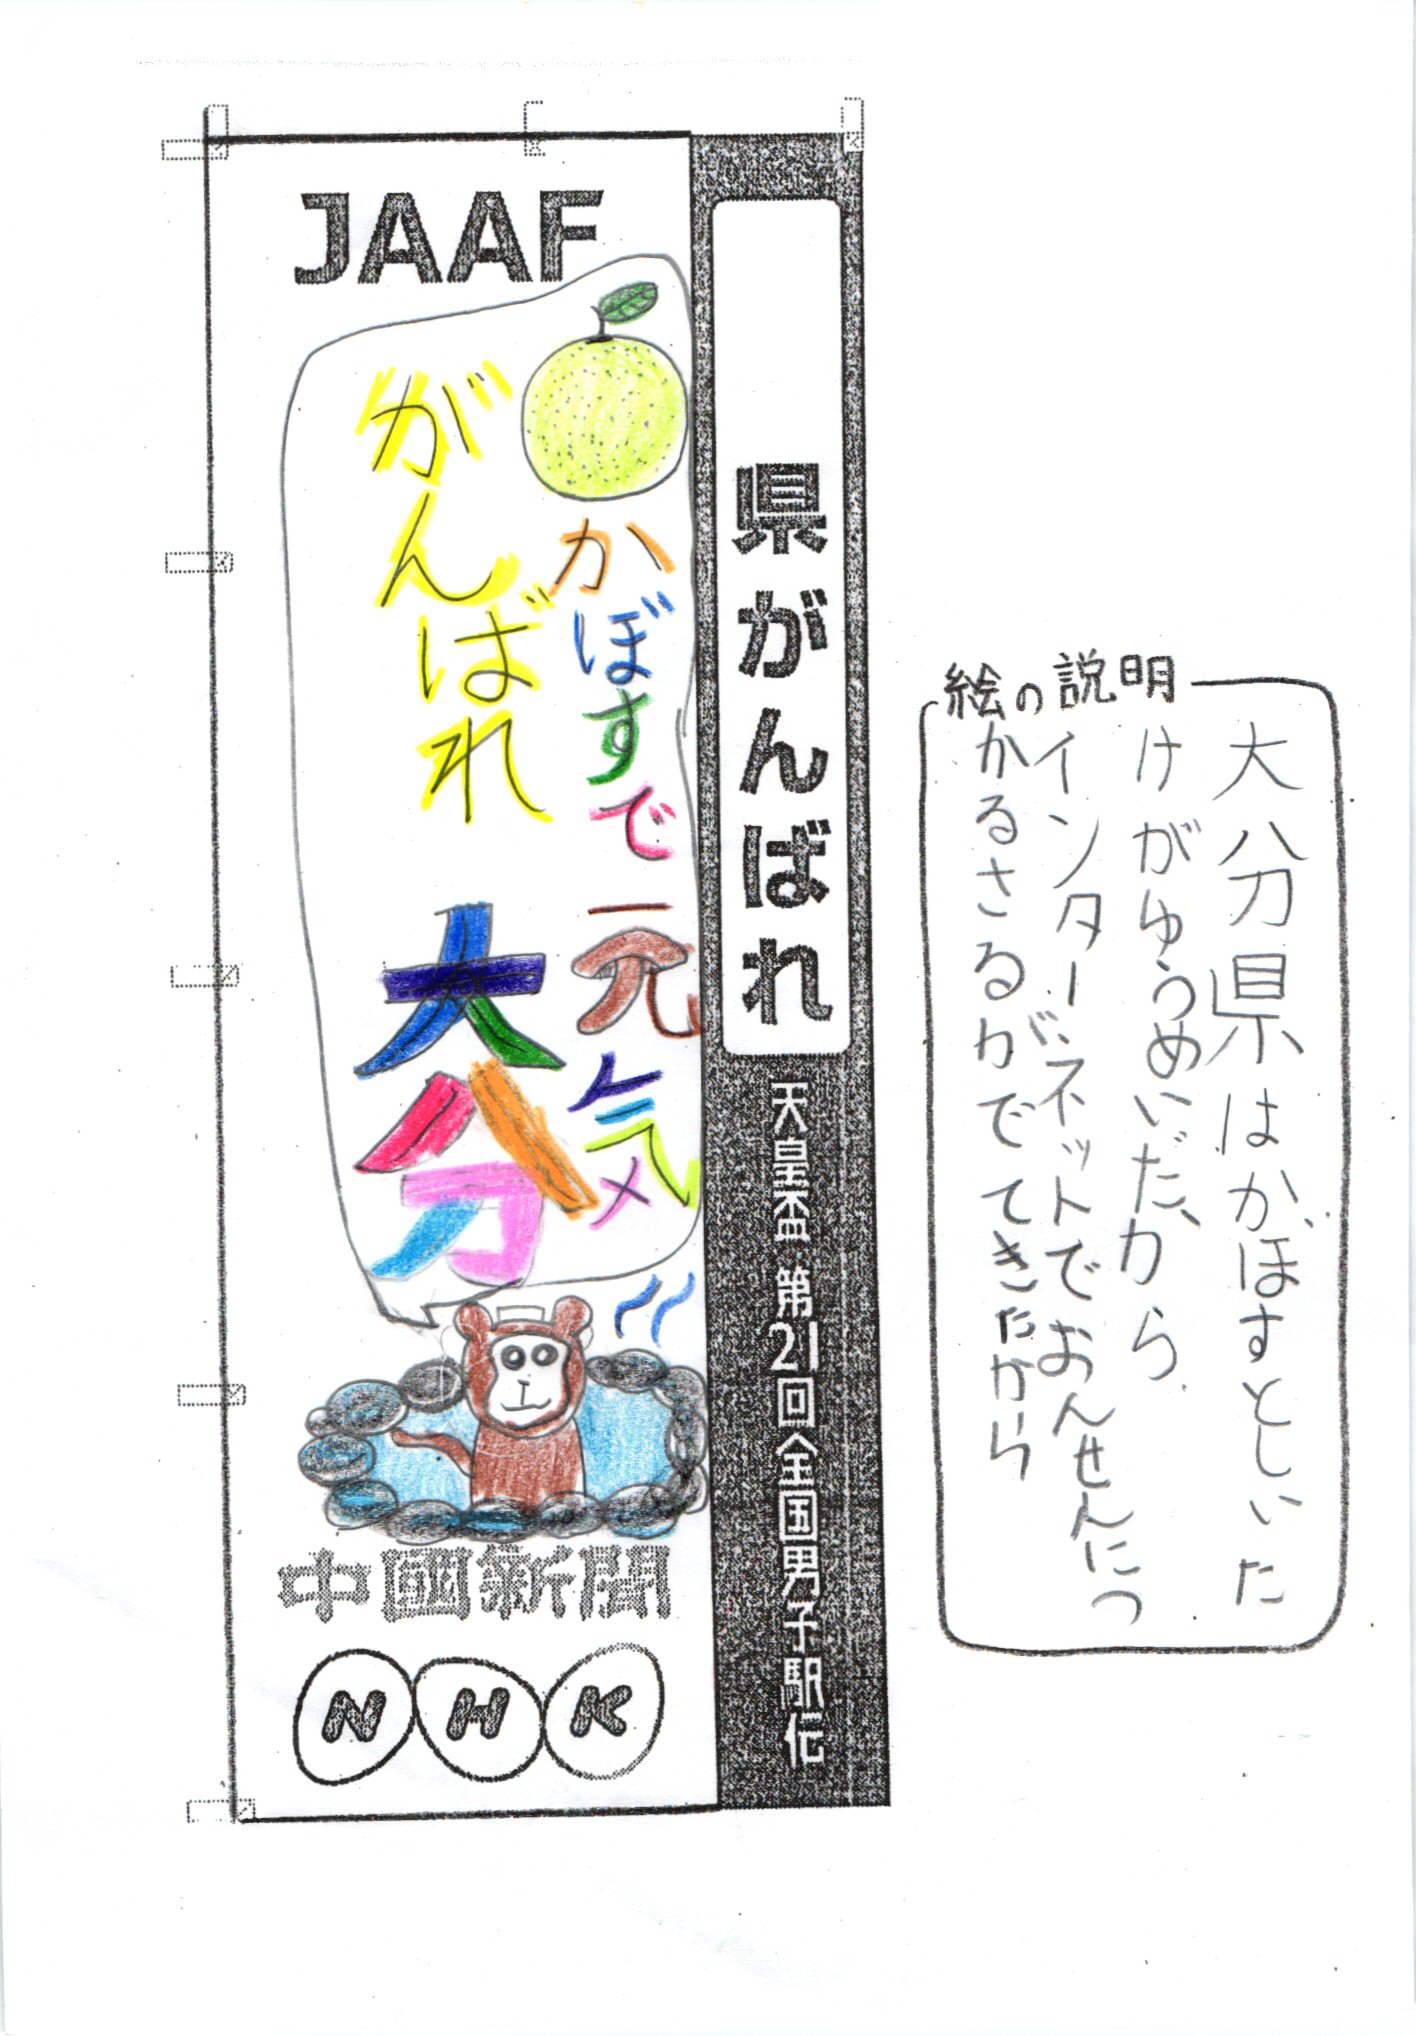 JAAF
県がんばれ
天皇盃 第21回全国男子駅伝
かぼすで元気
がんばれ 大分
中國新聞
NHK
絵の説明
大分県はかぼすとしいた
けがゆうめいだ、から
インターネットでおんせんにつ
かるさるがでてきたから